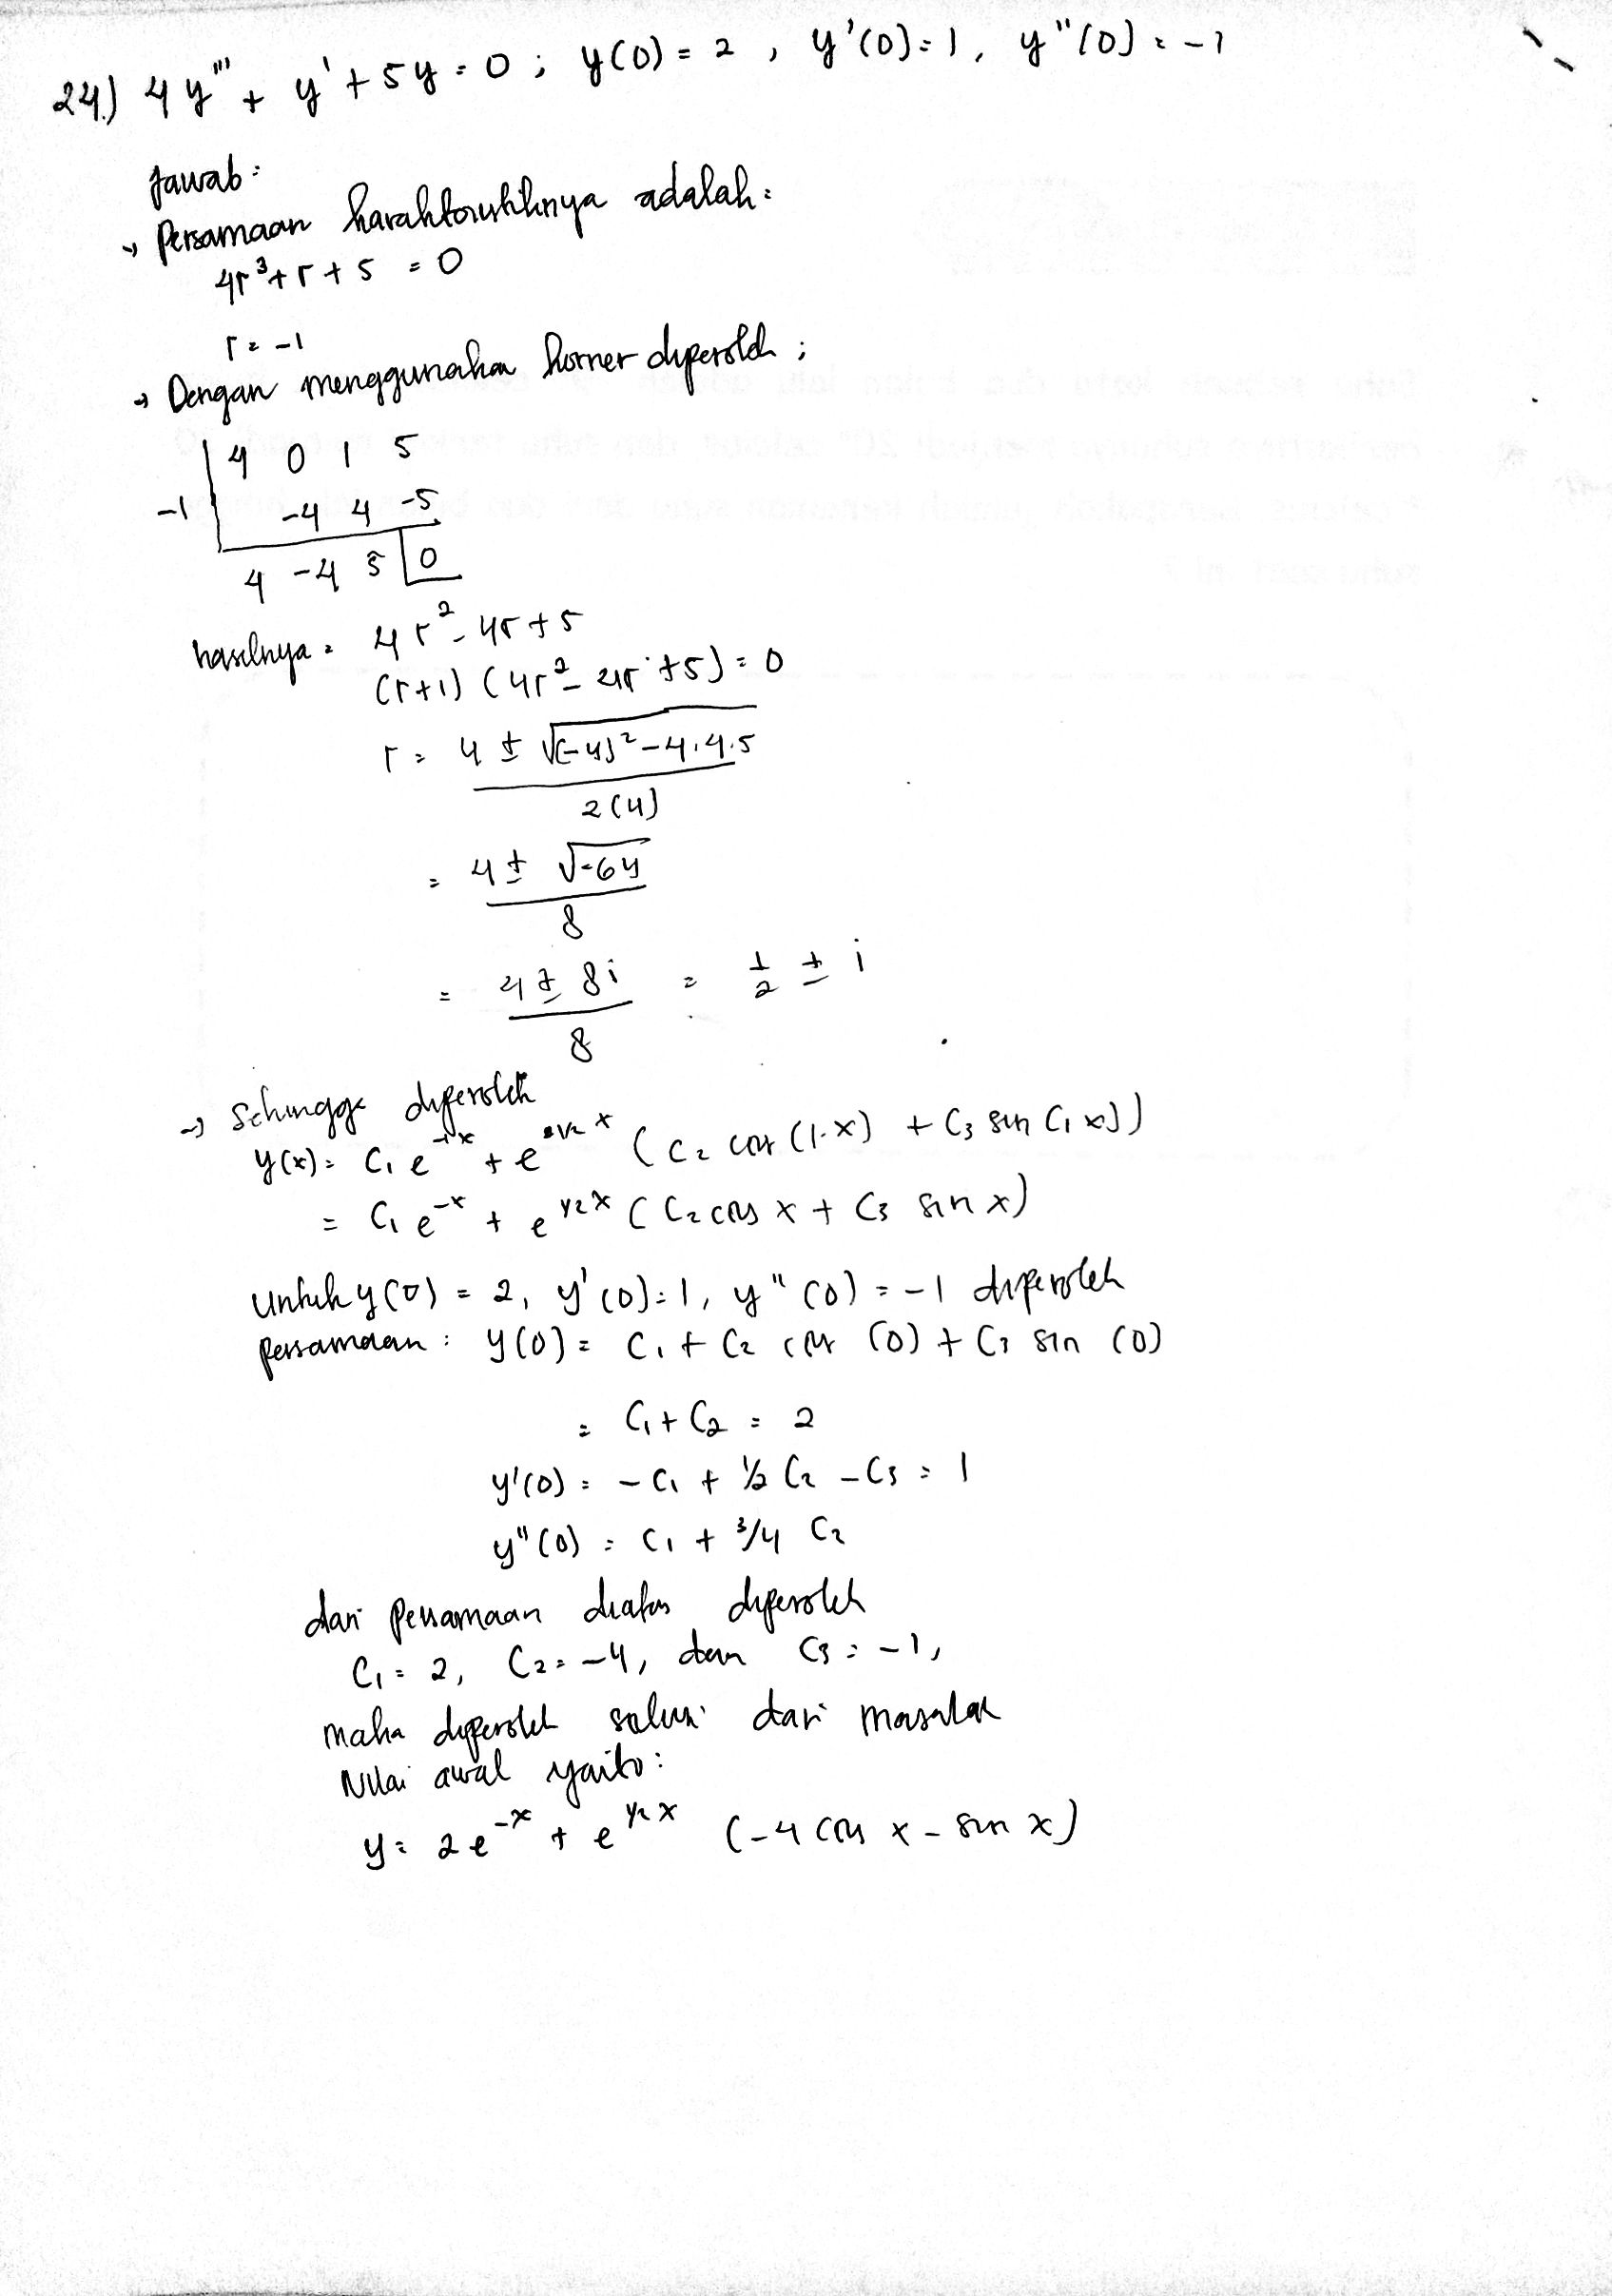 24.) 4y''' + y' + 5y = 0 ; y(0) = 2 , y'(0) = 1, y''(0) = -1
Jawab :
→ Persamaan karakteristiknya adalah :
4r³ + r + 5 = 0
r = -1
→ Dengan menggunakan horner diperoleh ;
4 0 1 5
-1 -4 4 -5
4 -4 5 0
hasilnya = 4r² - 4r + 5
(r+1) (4r² - 4r + 5) = 0
r = 4 ± √(-4)² - 4.4.5 / 2(4)
= 4 ± √-64 / 8
= 4 ± 8i / 8 = 1/2 ± i
→ Sehingga diperoleh
y(x) = C₁ e^-1x + e^1/2 x (C₂ cos (1.x) + C₃ sin (1 x))
= C₁ e^-x + e^1/2 x (C₂ cos x + C₃ sin x)
Untuk y(0) = 2, y'(0) = 1, y''(0) = -1 diperoleh
persamaan : y(0) = C₁ + C₂ cos (0) + C₃ sin (0)
= C₁ + C₂ = 2
y'(0) = - C₁ + 1/2 C₂ - C₃ = 1
y''(0) = C₁ + 3/4 C₂
dari persamaan diatas diperoleh
C₁ = 2, C₂ = -4, dan C₃ = -1,
maka diperoleh solusi dari masalah
Nilai awal yaitu :
y = 2e^-x + e^1/2 x (-4 cos x - sin x)